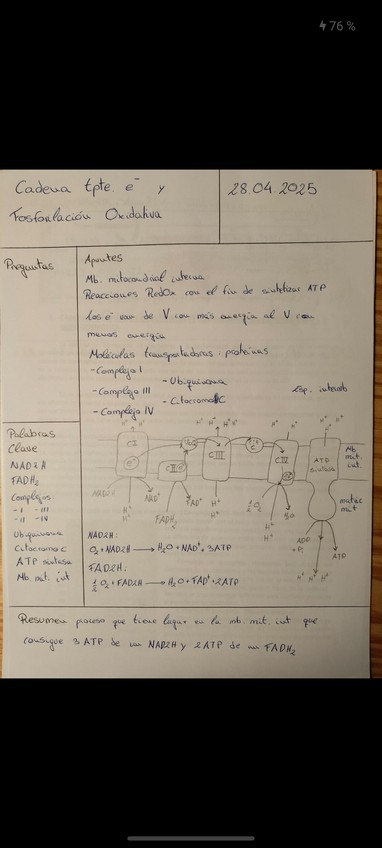 76 %
Cadena tpte. e⁻ y
Fosforilación Oxidativa
28.04.2025
Preguntas
Apuntes
Mb. mitocondrial interna
Reacciones RedOx con el fin de sintetizar ATP
los e⁻ van de V con más energía al V con
menos energía
Moléculas transportadoras: proteínas
-Complejo I
-Ubiquinona
-Complejo III
-Citocromo C
-Complejo IV
Esp. intermb
Palabras
Clave
NAD2H
FADH₂
Complejos
-I -III
-II -IV
Ubiquinona
Citocromo C
ATP sintasa
Mb. mit. int
H⁺ H⁺
H⁺ H⁺ H⁺
H⁺ H⁺
CI
e⁻
CII
CIII
C
CIV
ATP
sintasa
Mb
mit.
int.
matriz
mit
NAD2H
NAD⁺
FADH₂
FAD⁺
H⁺
H⁺
½ O₂
H₂O
H⁺
H⁺
ADP
+Pi
ATP
H⁺ H⁺ H⁺
NAD2H:
O₂ + NAD2H → H₂O + NAD⁺ + 3ATP
FAD2H:
½ O₂ + FAD2H → H₂O + FAD⁺ + 2ATP
Resumen proceso que tiene lugar en la mb. mit. int que
consigue 3 ATP de un NAD2H y 2 ATP de un FADH₂